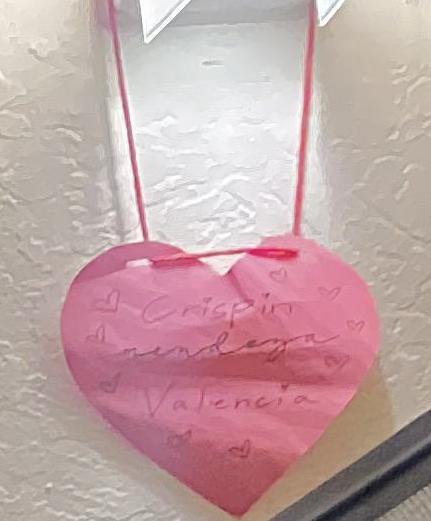 Crispin
mendeza
Valencia